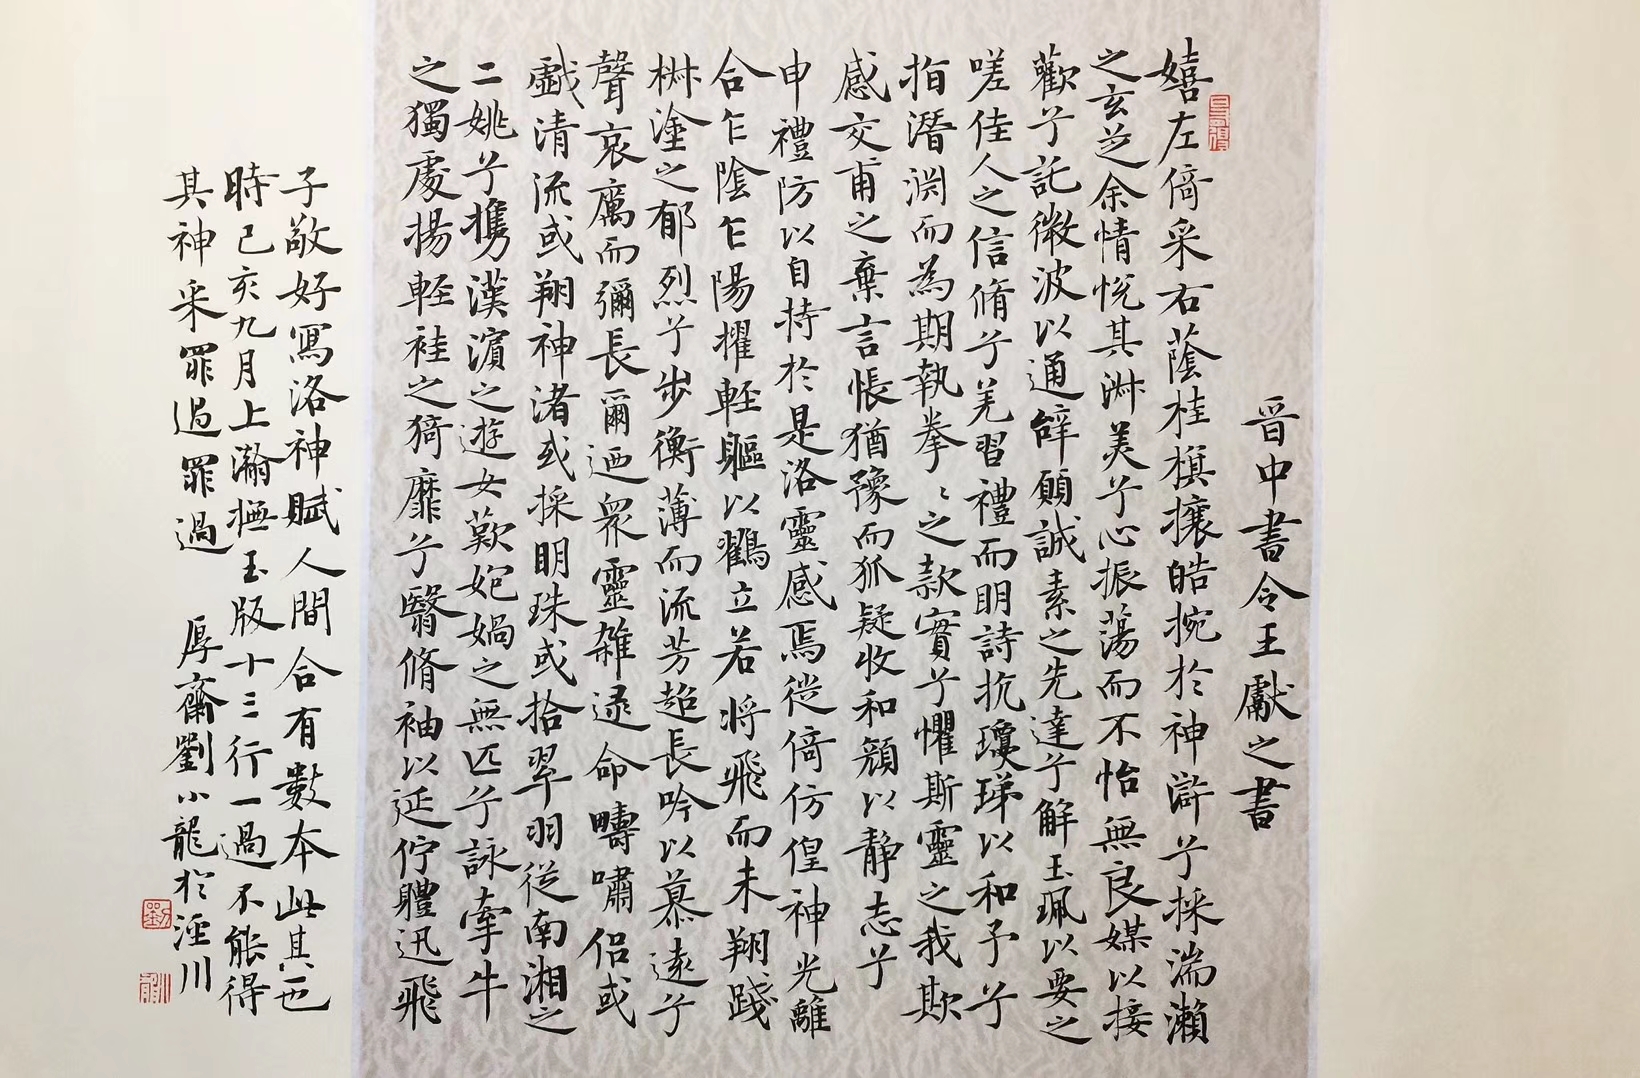 晋中書令王獻之書
嬉左倚采右蔭桂旗攘皓捥於神滸兮採湍瀨
之玄芝余情悅其淋美兮心振蕩而不怡無良媒以接
歡兮託微波以通辝願誠素之先達兮解玉珮以要之
嗟佳人之信脩兮羌習禮而明詩抗瓊珶以和予兮
指潛淵而為期執拳〻之款實兮懼斯靈之我欺
感交甫之棄言悵猶豫而狐疑收和顏以靜志兮
申禮防以自持於是洛靈感焉徙倚仿偟神光離
合乍陰乍陽擢輕軀以鶴立若將飛而未翔踐
椒塗之郁烈兮步衡薄而流芳超長吟以慕遠兮
聲哀厲而彌長爾迺衆靈雜遝命疇嘯侶或
戲清流或翔神渚或採明珠或拾翠羽從南湘之
二姚兮攜漢濱之遊女歎妑媧之無匹兮詠牽牛
之獨處揚輕袿之猗靡兮翳脩袖以延佇體迅飛
子敬好寫洛神賦人間合有數本此其一也
時己亥九月上瀚撫玉版十三行一過不能得
其神采罪過罪過 厚齋劉小龍於涇川